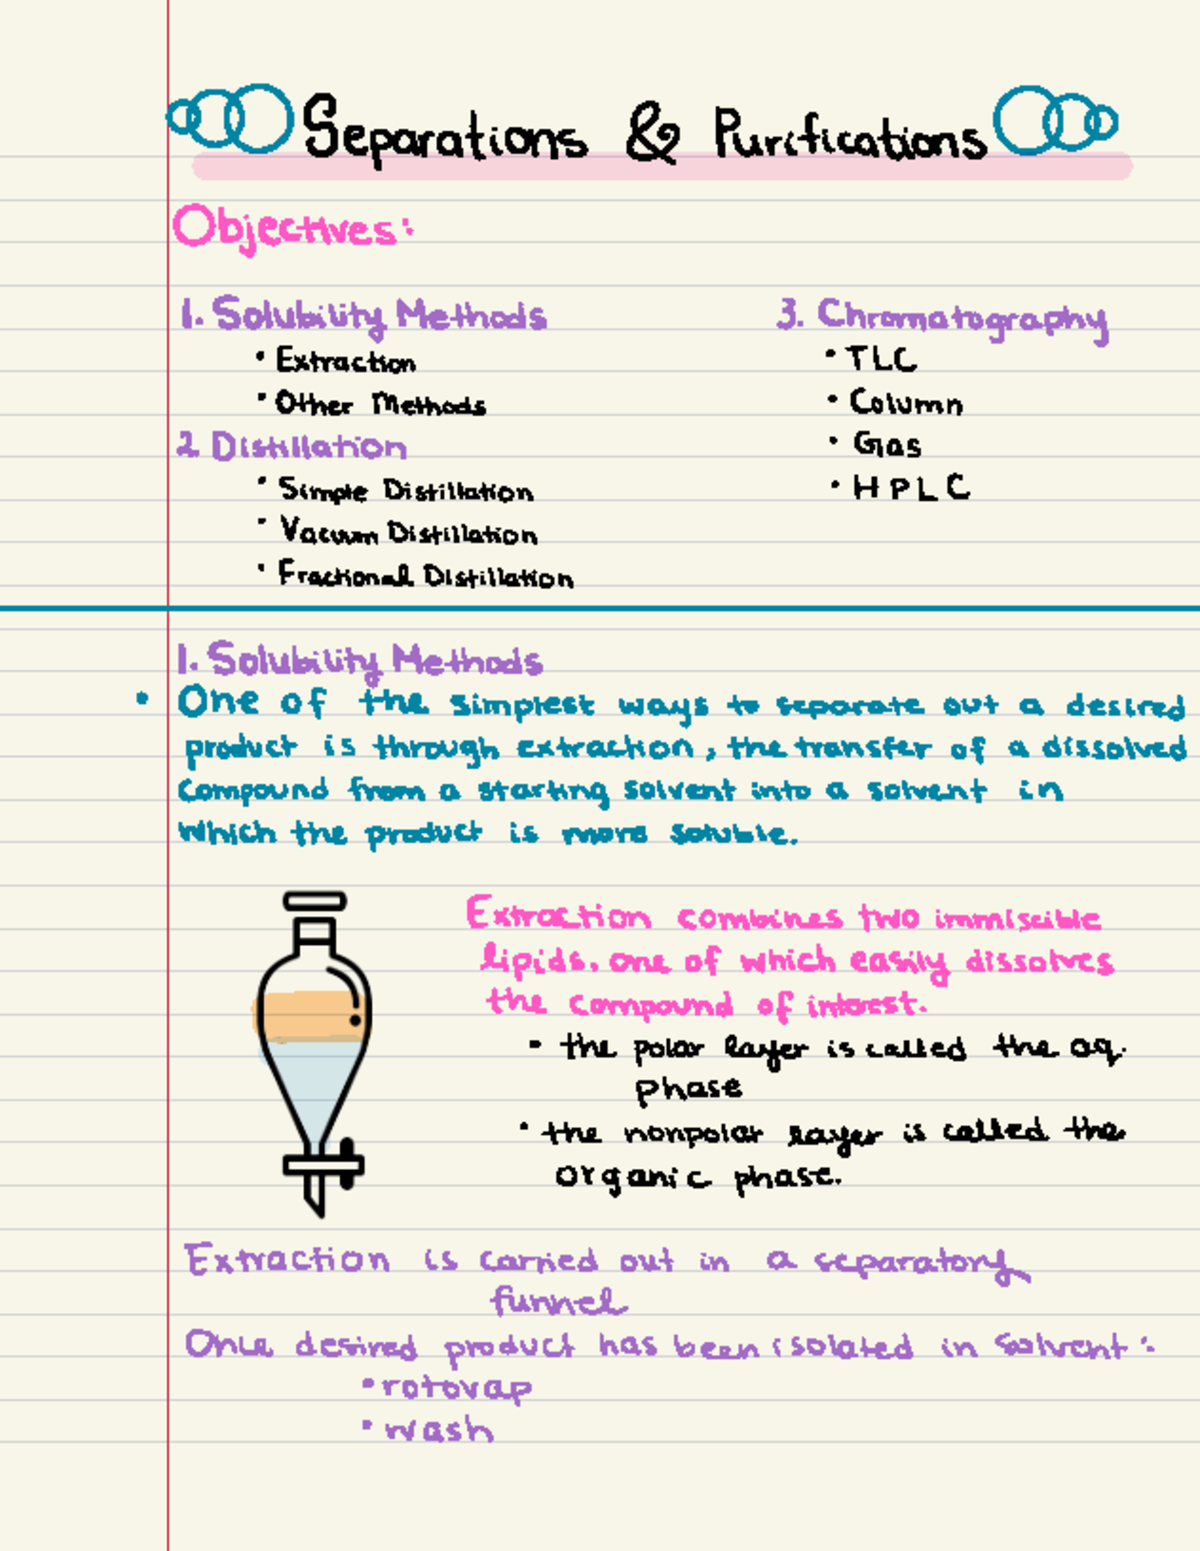 Separations & Purifications
Objectives:
1. Solubility Methods
• Extraction
• Other Methods
2. Distillation
• Simple Distillation
• Vacuum Distillation
• Fractional Distillation
3. Chromatography
• TLC
• Column
• Gas
• HPLC
1. Solubility Methods
• One of the simplest ways to separate out a desired
product is through extraction, the transfer of a dissolved
compound from a starting solvent into a solvent in
which the product is more soluble.
Extraction combines two immiscible
lipids. one of which easily dissolves
the compound of interest.
• the polar layer is called the aq.
phase
• the nonpolar layer is called the
organic phase.
Extraction is carried out in a separatory
funnel
Once desired product has been isolated in solvent:
• rotovap
• wash